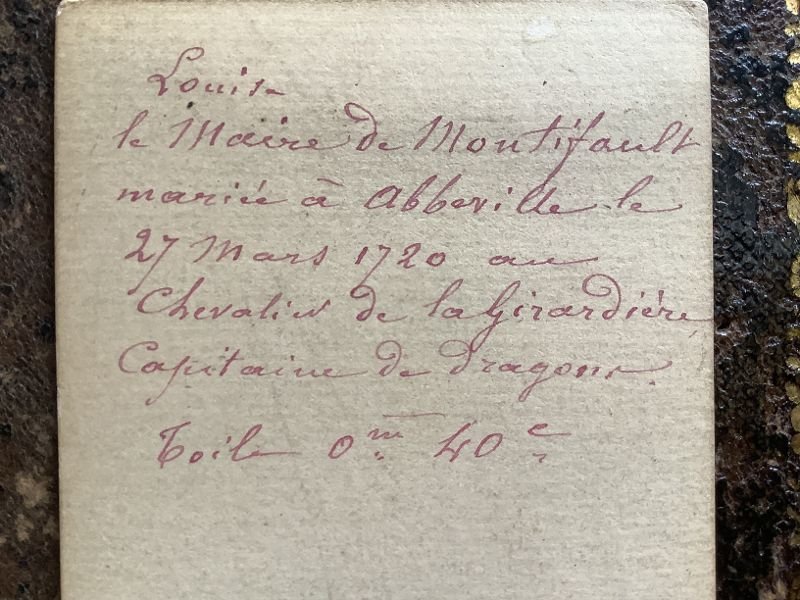 Louise
le Maire de Montifault
mariée à Abbeville le
27 Mars 1720 au
Chevalier de la Girardière
Capitaine de dragons.
Toile 0m 40c